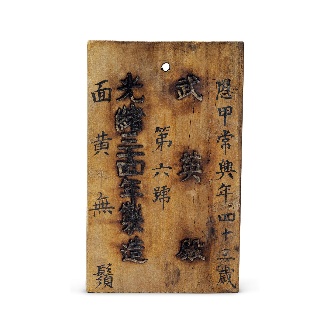 恩甲常興年四十三歲
武英殿
第六號
光緒三十四年製造
面黃無鬚